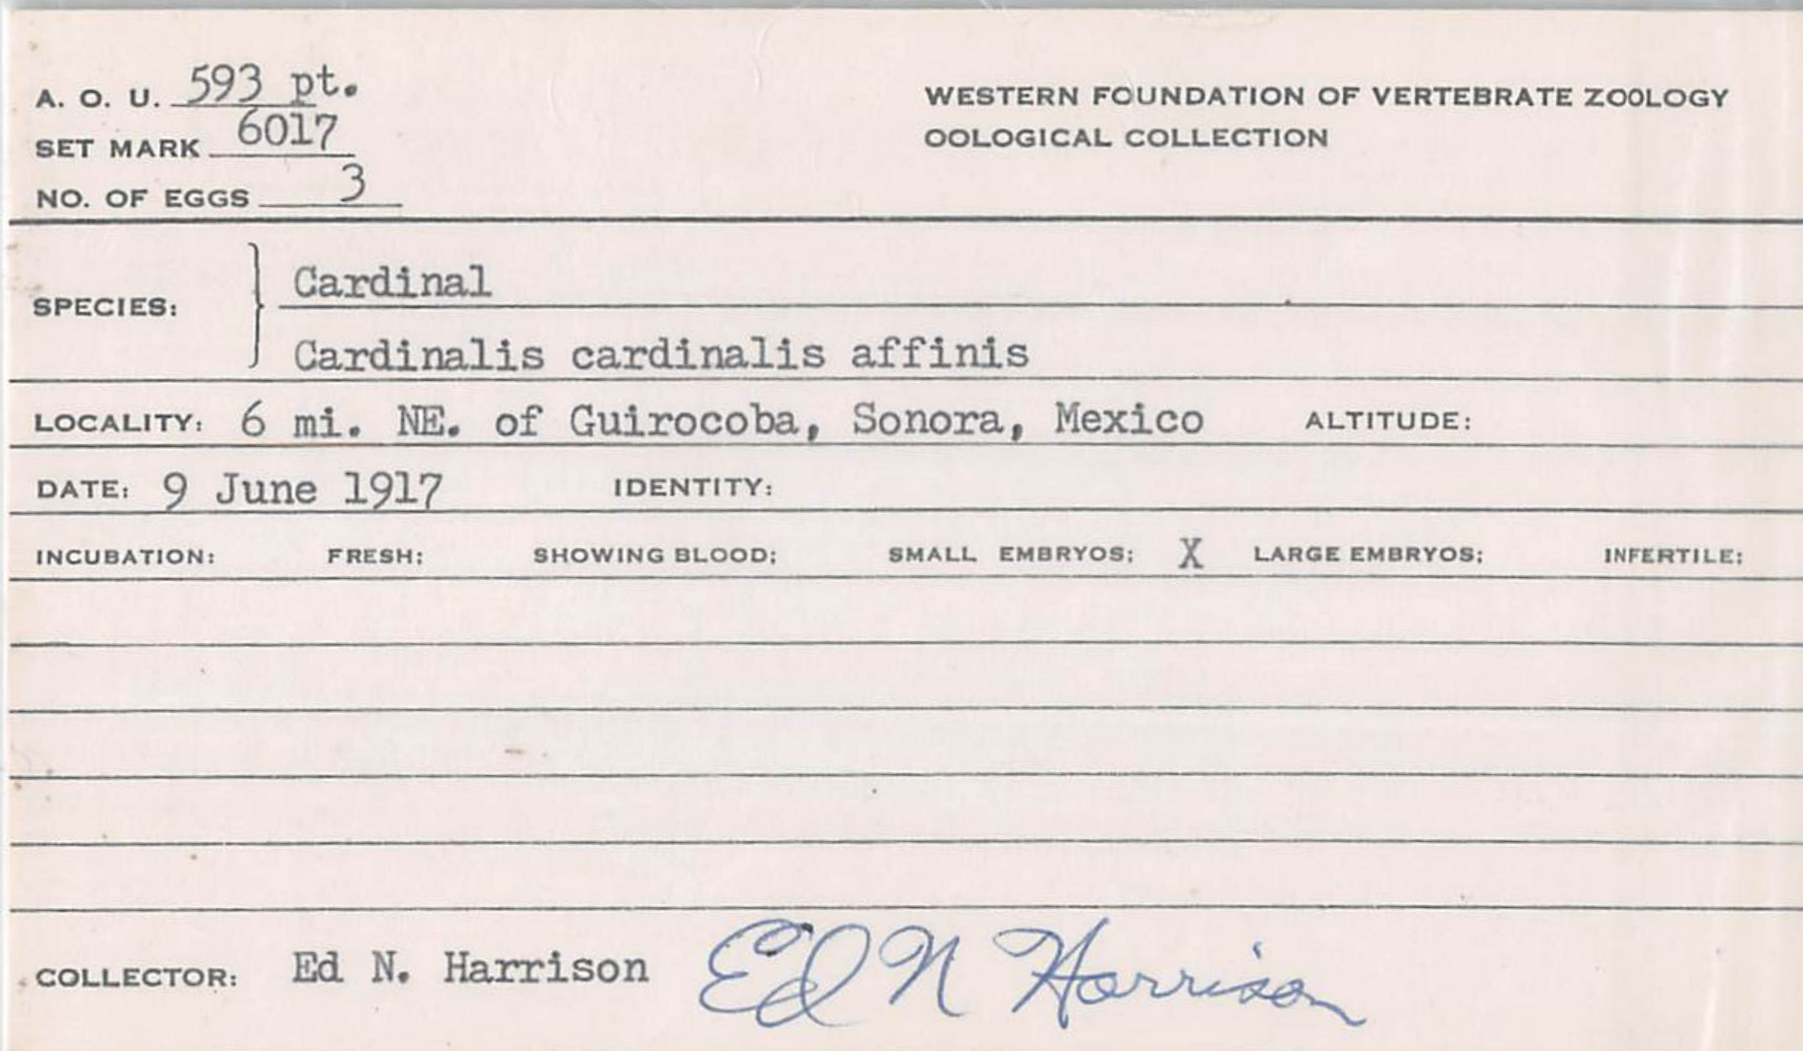 A. O. U. 593 pt.
WESTERN FOUNDATION OF VERTEBRATE ZOOLOGY
OOLOGICAL COLLECTION
SET MARK 6017
NO. OF EGGS 3
SPECIES: Cardinal
Cardinalis cardinalis affinis
LOCALITY: 6 mi. NE. of Guirocoba, Sonora, Mexico ALTITUDE:
DATE: 9 June 1917 IDENTITY:
INCUBATION: FRESH; SHOWING BLOOD; SMALL EMBRYOS; X LARGE EMBRYOS; INFERTILE;
COLLECTOR: Ed N. Harrison Ed N Harrison